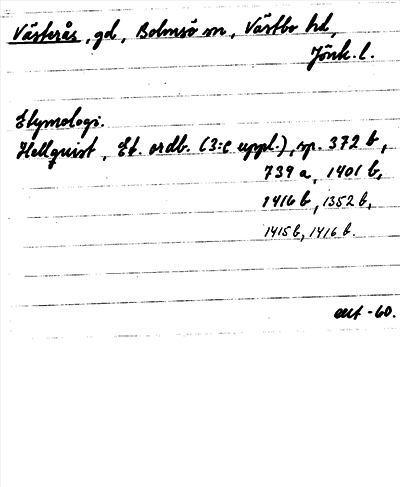 Västerås, gd, Bolmsö sn, Västbo hd,
Jönk. l.
Etymologi.
Hellquist, Et. ordb. (3:e uppl.), sp. 372 b,
739 a, 1401 b,
1416 b, 1352 b,
1415 b, 1416 b.
-60.